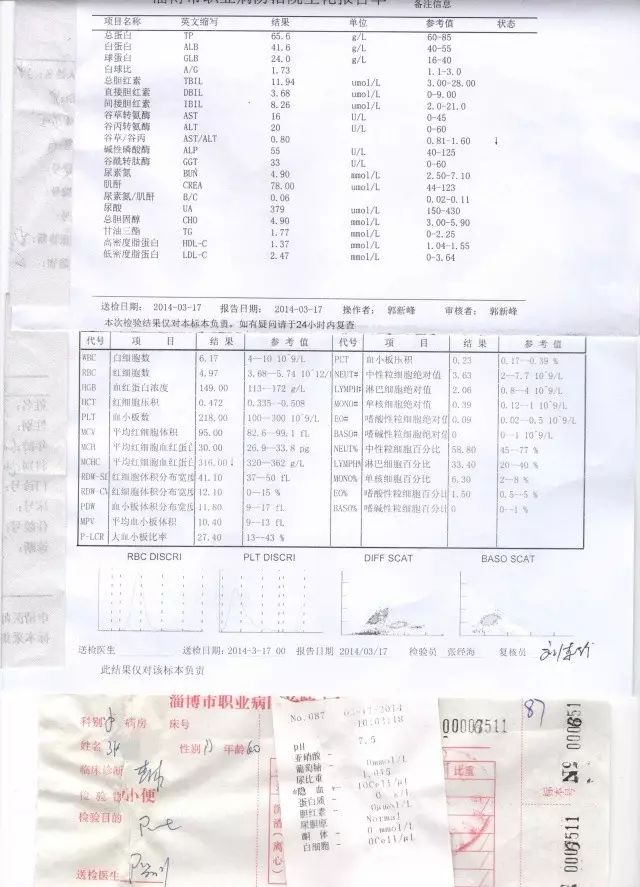 备注信息
项目名称 英文缩写 结果 单位 参考值 状态
总蛋白 TP 65.6 g/L 60-85
白蛋白 ALB 41.6 g/L 40-55
球蛋白 GLB 24.0 g/L 16-40
白球比 A/G 1.73 1.1-3.0
总胆红素 TBIL 11.94 umol/L 3.00-28.00
直接胆红素 DBIL 3.68 umol/L 0-9.00
间接胆红素 IBIL 8.26 umol/L 2.0-21.0
谷草转氨酶 AST 16 U/L 0-45
谷丙转氨酶 ALT 20 U/L 0-60
谷草/谷丙 AST/ALT 0.80 0.81-1.60 ↓
碱性磷酸酶 ALP 55 U/L 40-125
谷酰转肽酶 GGT 33 U/L 0-60
尿素氮 BUN 4.90 mmol/L 2.50-7.10
肌酐 CREA 78.00 umol/L 44-123
尿素氮/肌酐 B/C 0.06 0.02-0.11
尿酸 UA 379 umol/L 150-430
总胆固醇 CHO 4.90 mmol/L 3.00-5.90
甘油三酯 TG 1.77 mmol/L 0-2.25
高密度脂蛋白 HDL-C 1.37 mmol/L 1.04-1.55
低密度脂蛋白 LDL-C 2.47 mmol/L 0-3.64
送检日期: 2014-03-17 报告日期: 2014-03-17 操作者: 郭新峰 审核者: 郭新峰
本次检验结果仅对本标本负责，如有疑问请于24小时内复查
代号 项 目 结 果 参 考 值 代号 项 目 结 果 参 考 值
WBC 白细胞数 6.17 4--10 10^9/L PCT 血小板压积 0.23 0.17--0.39 %
RBC 红细胞数 4.97 3.68--5.74 10^12/ NEUT# 中性粒细胞绝对值 3.63 2--7.7 10^9/L
HGB 血红蛋白浓度 149.00 113--172 g/L LYMPH# 淋巴细胞绝对值 2.06 0.8--4 10^9/L
HCT 红细胞压积 0.472 0.335--0.508 MONO# 单核细胞绝对值 0.39 0.12--1 10^9/L
PLT 血小板数 218.00 100--300 10^9/L EO# 嗜酸性粒细胞绝对 0.09 0.02--0.5 10^9/L
MCV 平均红细胞体积 95.00 82.6--99.1 fL BASO# 嗜碱性粒细胞绝对 0 0--1 10^9/L
MCH 平均红细胞血红蛋 30.00 26.9--33.8 pg NEUT% 中性粒细胞百分比 58.80 45--77 %
MCHC 平均红细胞血红蛋 316.00↓ 320--362 g/L LYMPH% 淋巴细胞百分比 33.40 20--40 %
RDW-SD 红细胞体积分布宽度 41.10 37--50 fL MONO% 单核细胞百分比 6.30 2--8 %
RDW-CV 红细胞体积分布宽度 12.10 0--15 % EO% 嗜酸性粒细胞百分 1.50 0.5--5 %
PDW 血小板体积分布宽度 11.80 9--17 fL BASO% 嗜碱性粒细胞百分 0 0--1 %
MPV 平均血小板体积 10.40 9--13 fL
P-LCR 大血小板比率 27.40 13--43 %
RBC DISCRI PLT DISCRI DIFF SCAT BASO SCAT
送检医生 送检日期: 2014-3-17 00 报告日期 2014/03/17 检验员 张经海 复核员
此结果仅对该标本负责
淄博市职业病
科别 病房 床号
姓名 性别 年龄 60
临床诊断
小便
检验目的
送检医生
No.087 03-17-2014
10:03:18
pH 7.5
亚硝酸 -
葡萄糖 - 0mmol/L
尿比重 1.015
*隐血 10Cell/μl
蛋白质 -
胆红素 - 0μmol/L
尿胆原 Normal
酮体 - 0 mmol/L
白细胞 - 0Cell/μL
比重
87